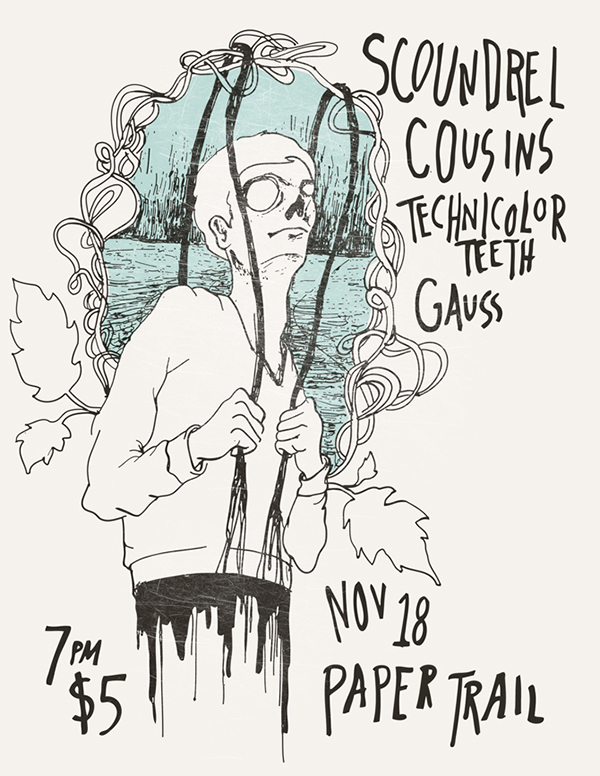 SCOUNDREL
COUSINS
TECHNICOLOR
TEETH
GAUSS
NOV 18
PAPER TRAIL
7PM
$5